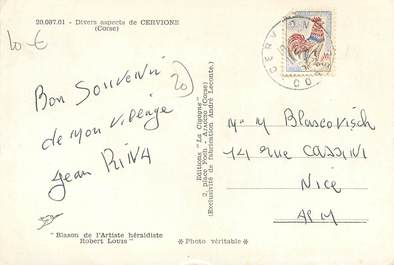 20.087.01 - Divers aspects de CERVIONE
(Corse)
10 €
20
Bon Souvenir
de mon village
Jean RINA
"Blason de l'Artiste héraldiste
Robert Louis"
* Photo véritable *
Editions "La Cigogne"
2, place Foch - Ajaccio (Corse)
(Exclusivité de fabrication André Leconte.)
CERVIONE
CO
Mr M Blascovisch
14 rue CASSINI
Nice
AM